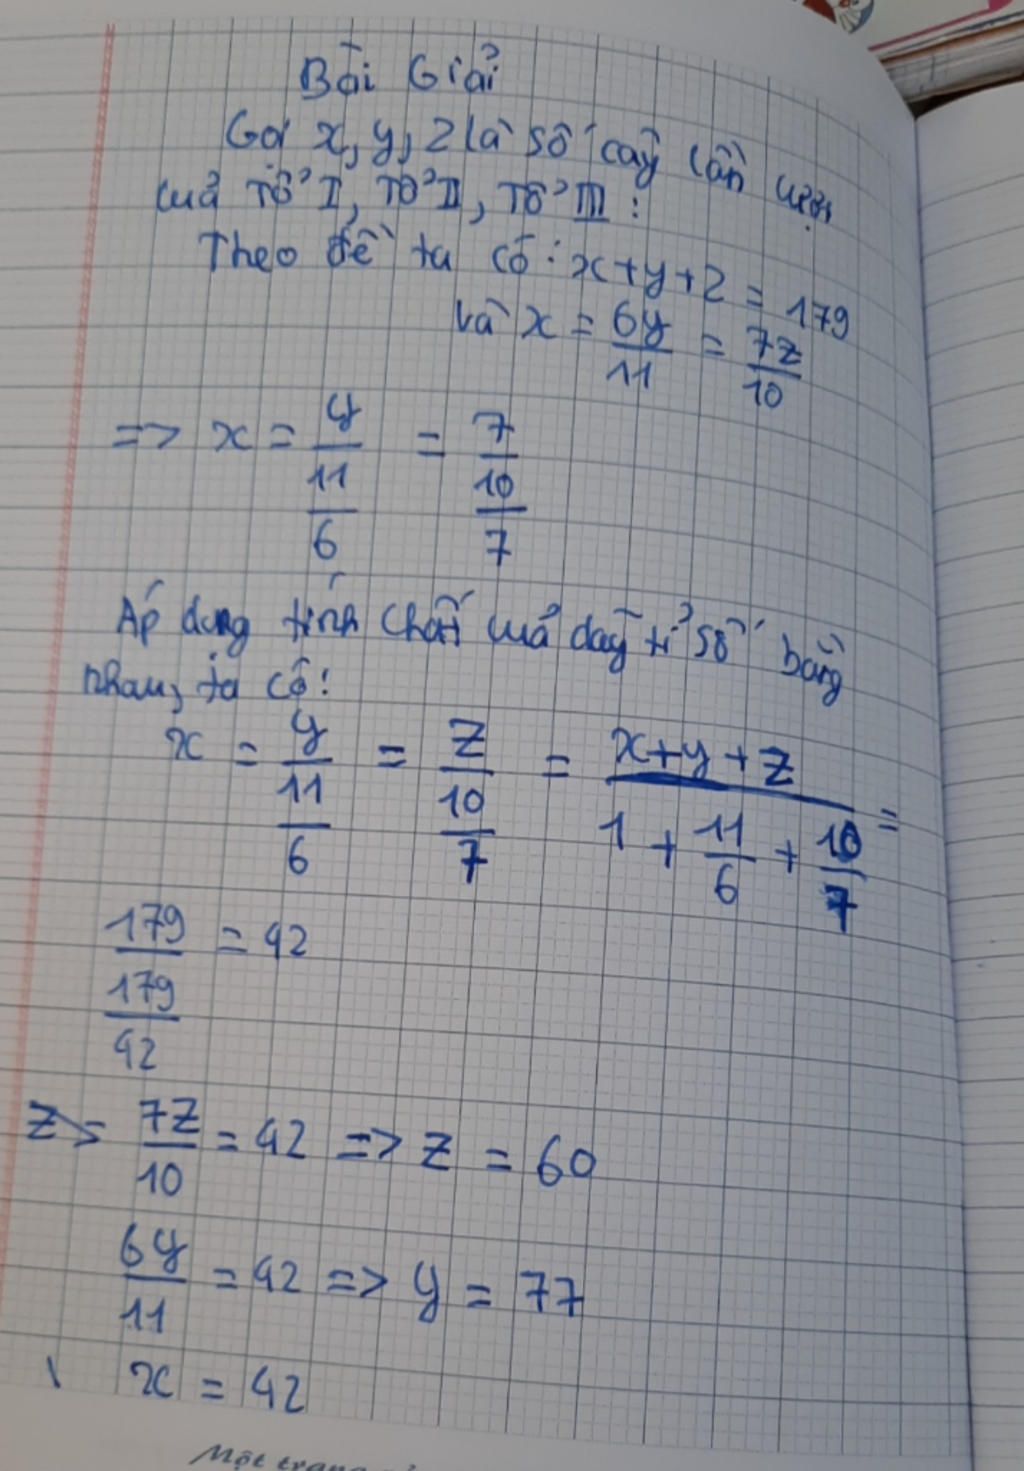 Bài Giải
Gọi x, y, z là số cây lần lượt
của Tổ I, Tổ II, Tổ III:
Theo đề ta có: x+y+z = 179
và x = 6y/11 = 7z/10
=> x = y/(11/6) = 7/(10/7)
Áp dụng tính chất của dãy tỉ số bằng
nhau, ta có:
x = y/(11/6) = z/(10/7) = (x+y+z)/(1 + 11/6 + 10/7) =
179/(179/42) = 42
7z/10 = 42 => z = 60
6y/11 = 42 => y = 77
x = 42
Một trang